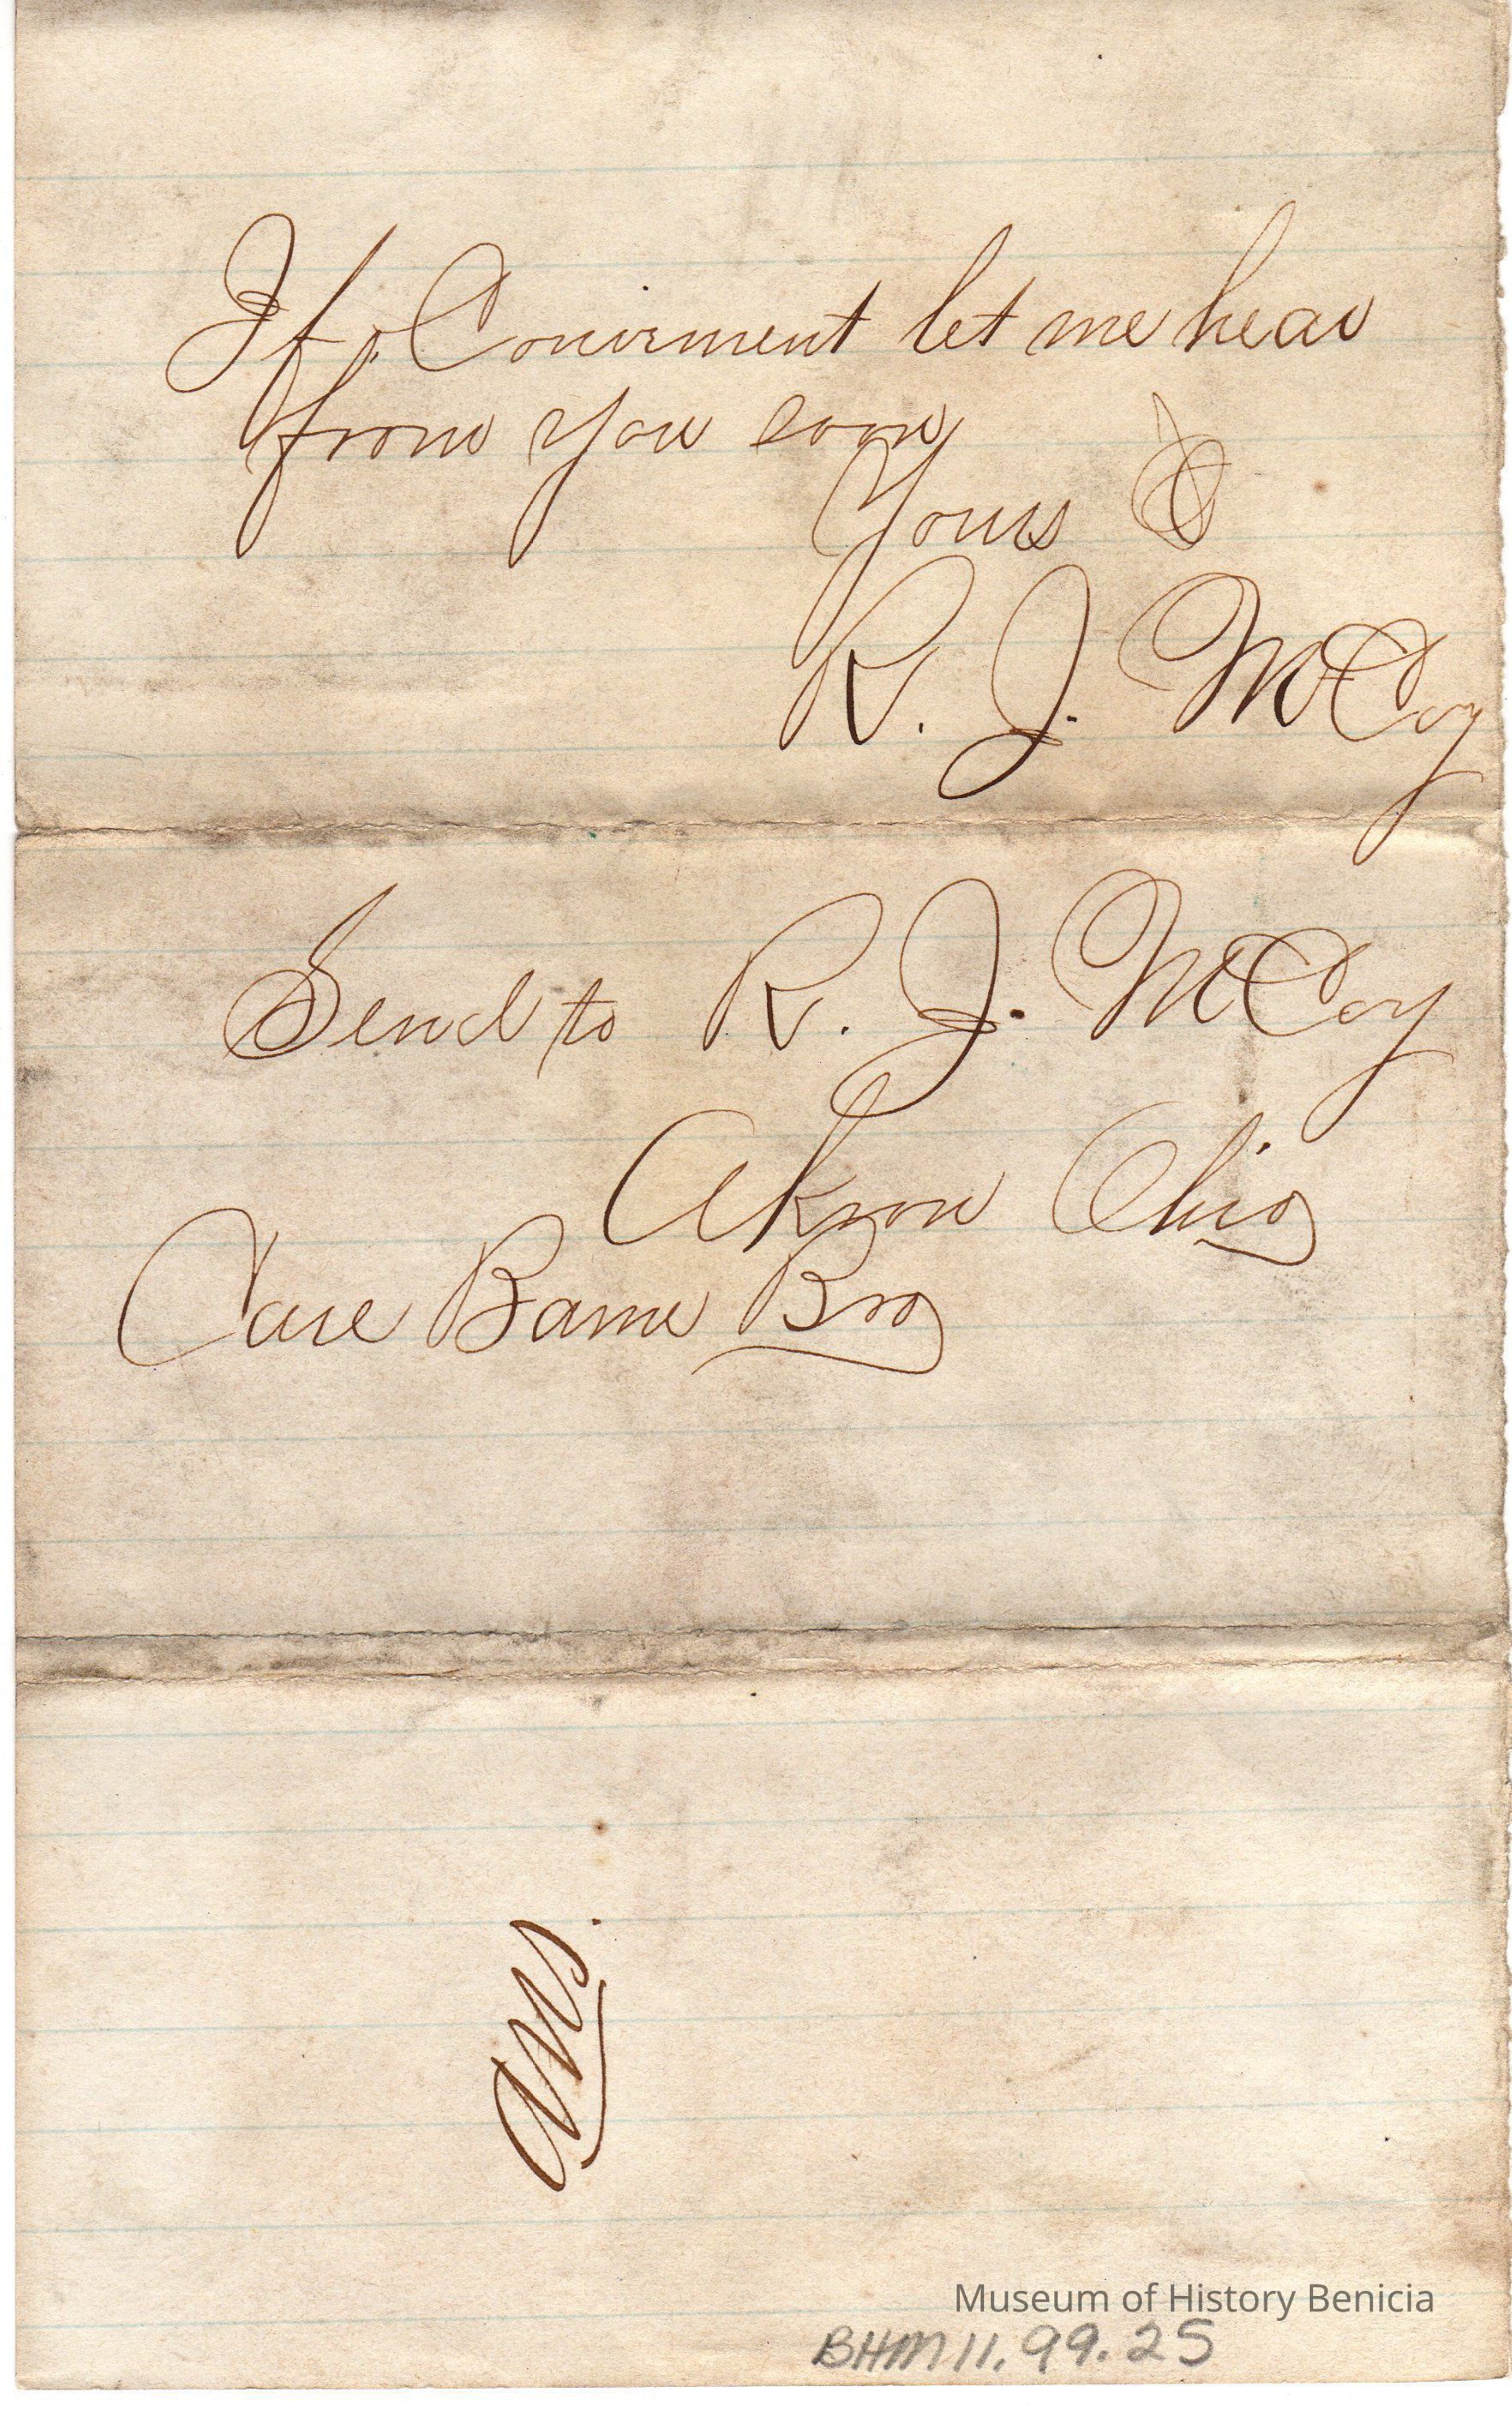 If Convenient let me hear
from you soon
Yours &
R. J. McCoy
Send to R. J. McCoy
Akron Ohio
Care Barne Bro
Ans.
Museum of History Benicia
BHM 11.99.25